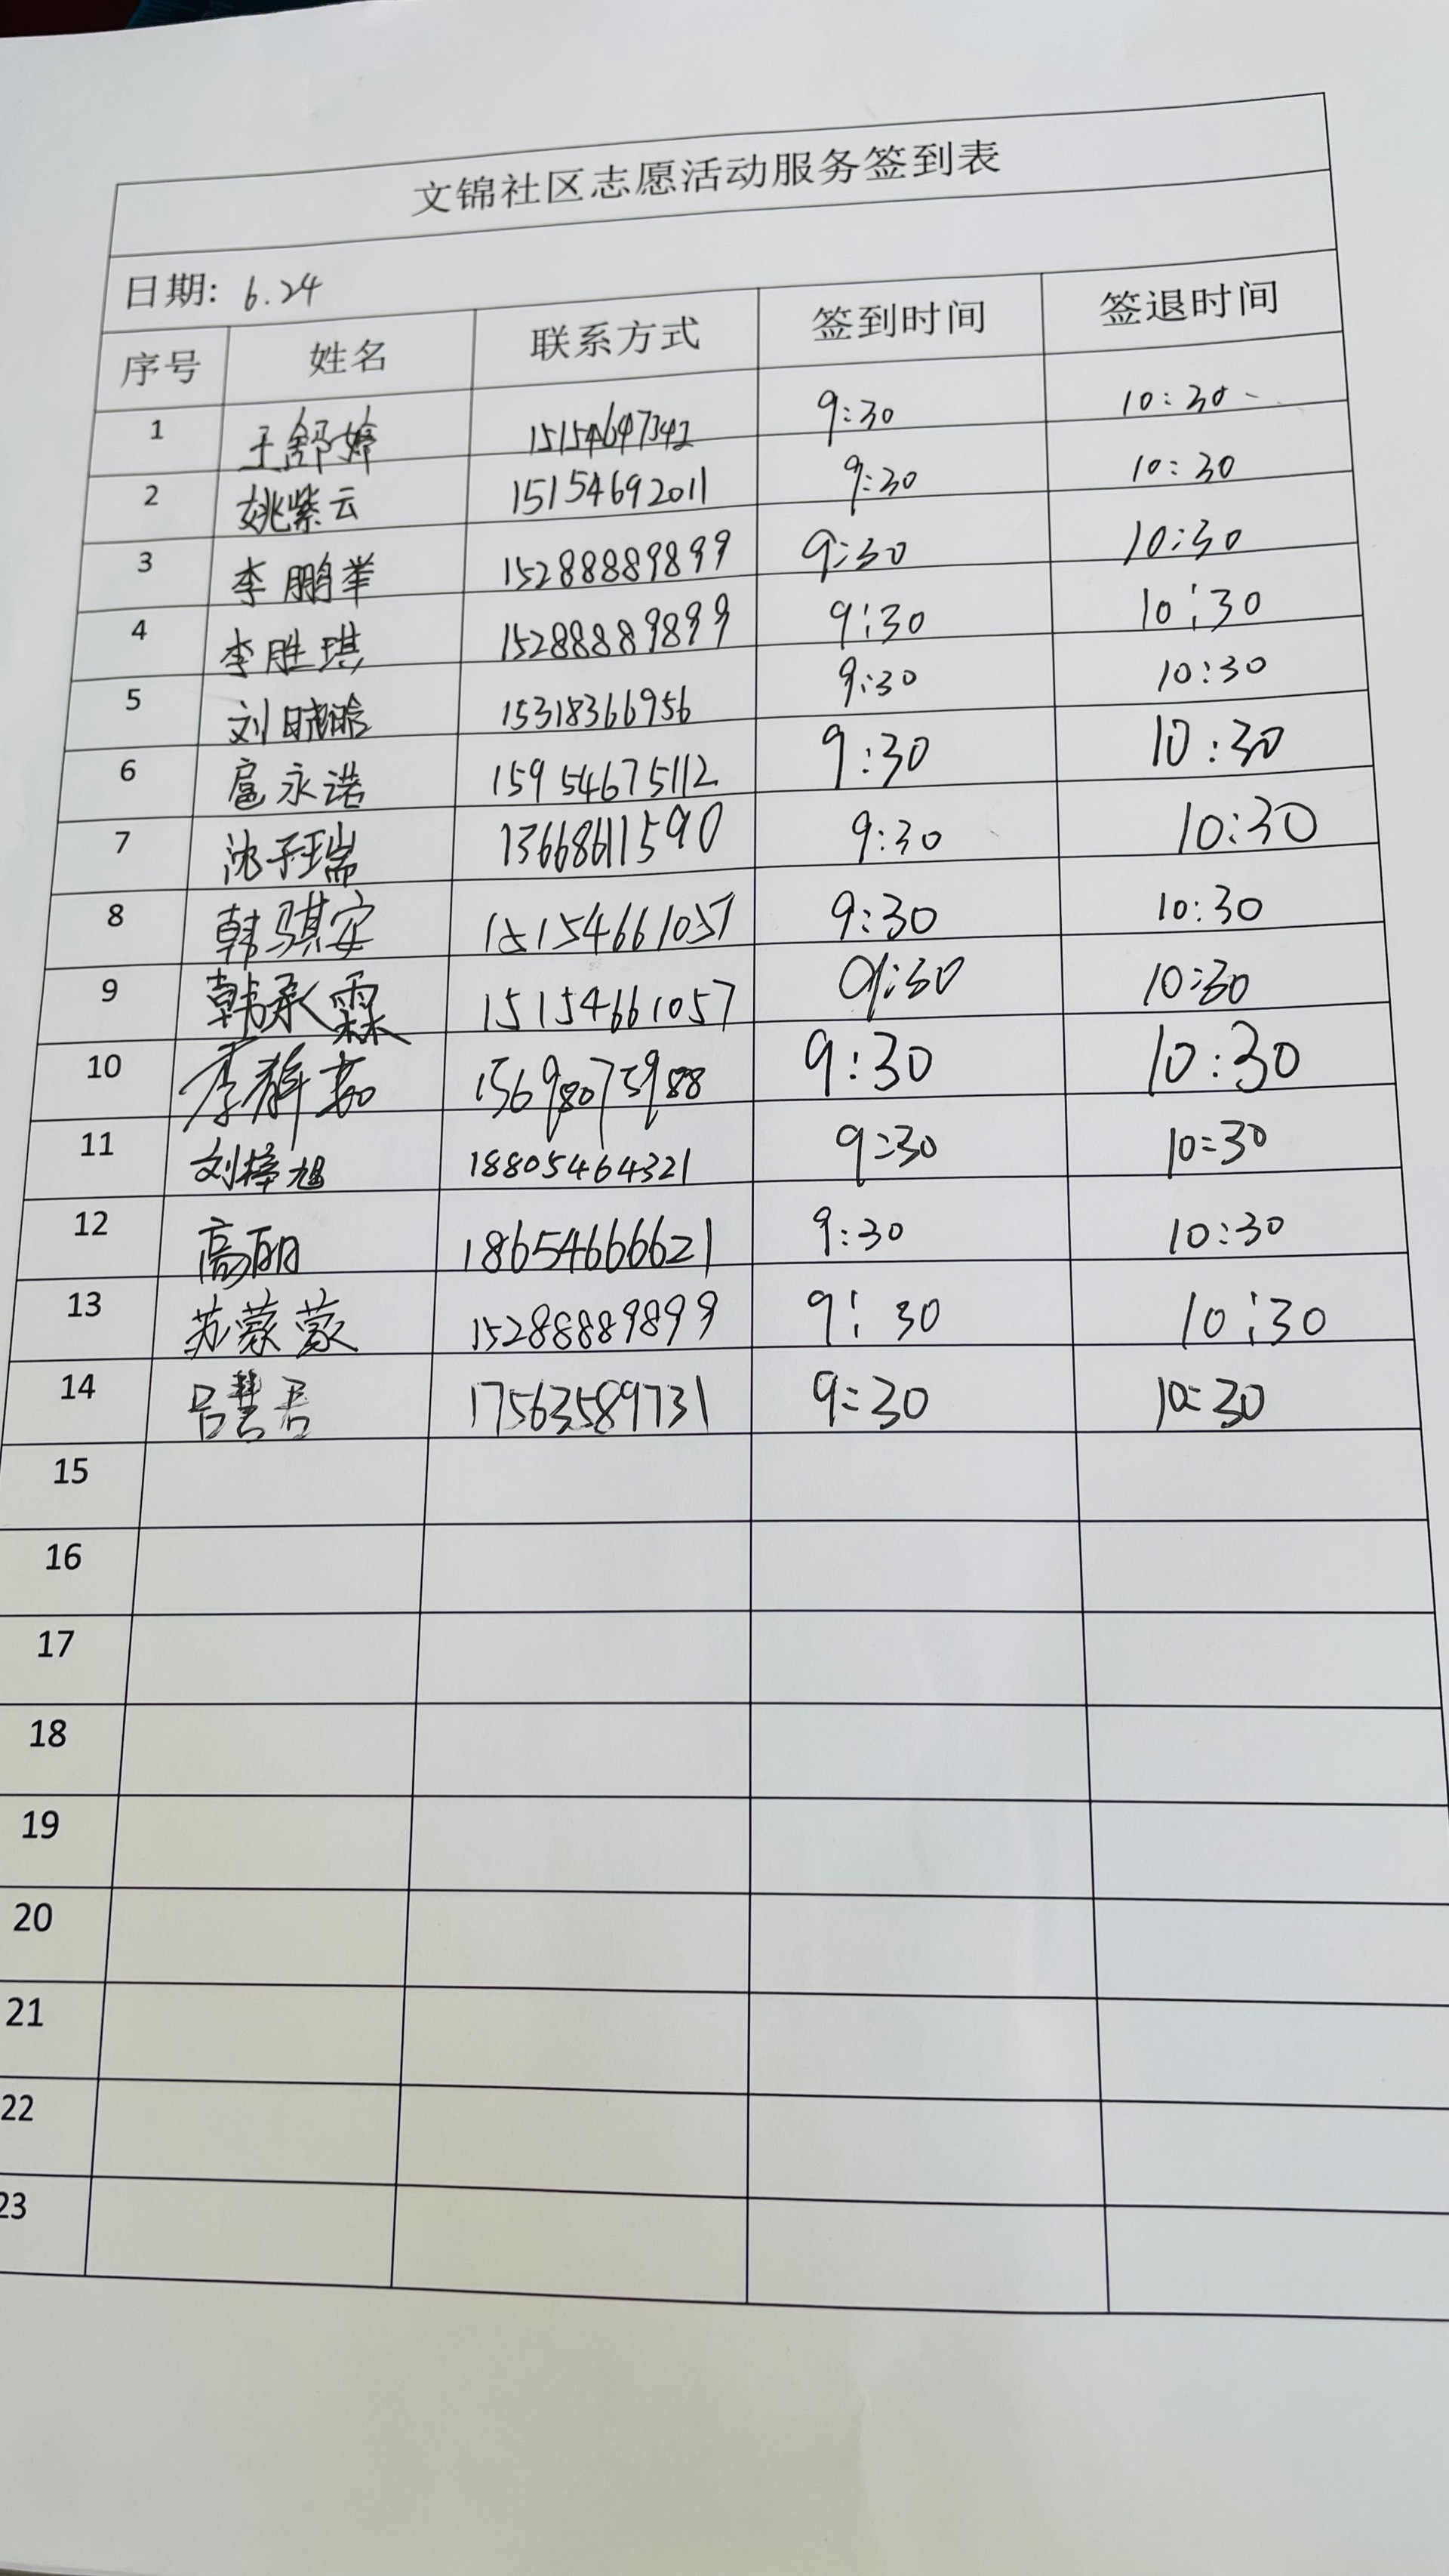 文锦社区志愿活动服务签到表
日期: 6.24
序号 姓名 联系方式 签到时间 签退时间
1 王舒婷 15154647342 9:30 10:30
2 姚紫云 15154692011 9:30 10:30
3 李鹏举 15288889899 9:30 10:30
4 李胜琪 15288889899 9:30 10:30
5 刘晓晗 15318366956 9:30 10:30
6 扈永诺 15954675112 9:30 10:30
7 沈子瑞 13668611590 9:30 10:30
8 韩骐安 15154661057 9:30 10:30
9 韩承霖 15154661057 9:30 10:30
10 李静茹 15698075988 9:30 10:30
11 刘梓旭 18805464321 9:30 10:30
12 高丽 18654666621 9:30 10:30
13 苏蒙蒙 15288889899 9:30 10:30
14 吕慧君 17563589731 9:30 10:30
15
16
17
18
19
20
21
22
23